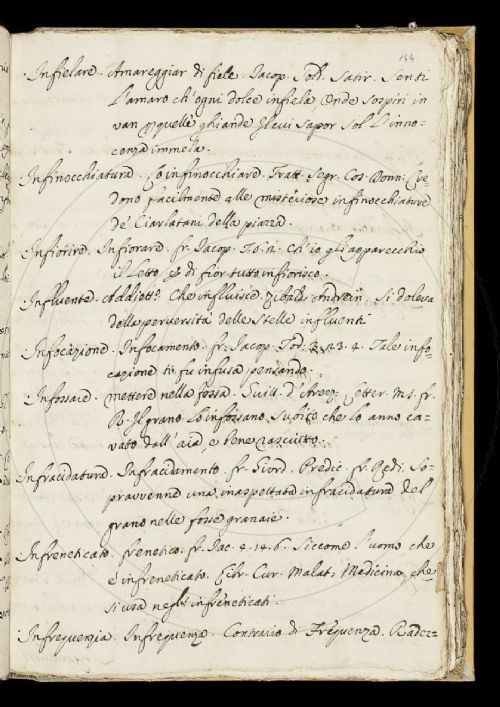 144
Infielare. Amareggiar di fiele. Jacop. Sold. Satir. Senti
l'amaro ch'ogni dolce infiela Onde sospiri in
van quelle ghiande Il cui sapor sol l'inno=
cenza immela.
Infinocchiatura. Lo infinocchiare. Tratt. Segr. Cos. Donn. Cre=
dono facilmente alle misteriose infinocchiature
de' Ciarlatani della piazza.
Infiorire. Infiorare. fr. Jacop. To: n. Ch'io gli apparecchio
il letto di fior tutto infiorisco.
Influente. Addiett.o Che influisce. Zibald. Andrein. Si doleva
della perversità delle stelle influenti
Infocazione. Infocamento. fr. Jacop. Tod. 3. 23. 4. Tale info=
cazione ti fu infusa pensando.
Infossare. Metter nella fossa. Guitt. d'Arezz. Letter. Ms. fr.
R. Il grano lo infossano subito che lo anno ca=
vato dall'aia e bene rasciutto.
Infracidatura. Infracidamento. fr. Giord. Predic. fr. Redi. So=
pravvenne una inaspettata infracidatura del
grano nelle fosse granaie.
Infreneticato. frenetico. fr. Jac. 4. 14. 6. Siccome l'uomo che
è infreneticato. Libr. Cur. Malat. Medicina che
si usa negli infreneticati.
Infrequenzia. Infrequenza. Contrario di Frequenza.